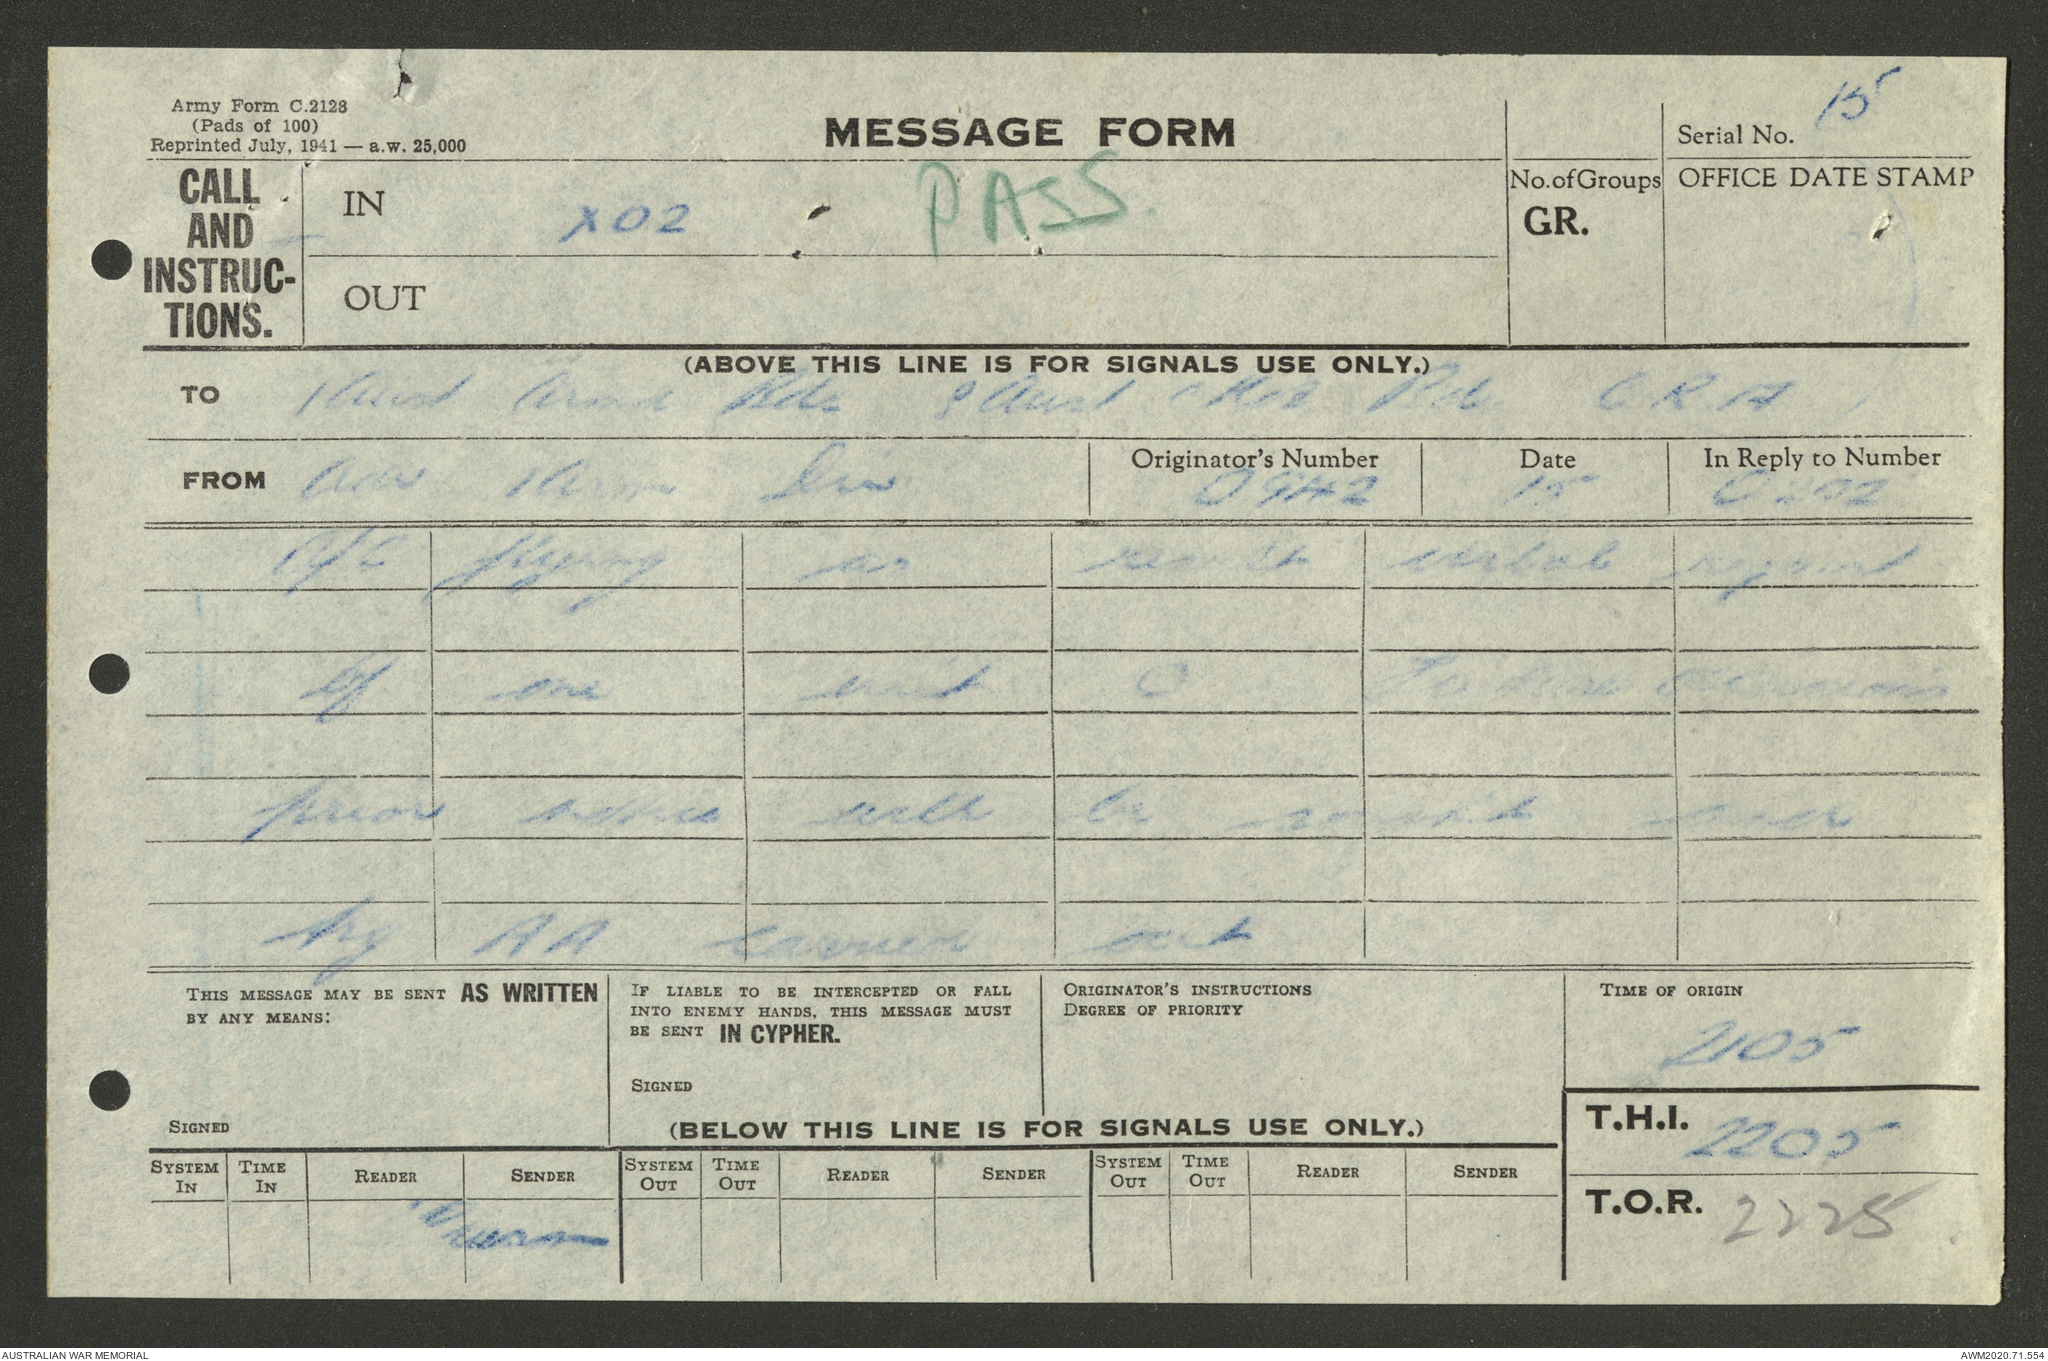 Army Form C.2128
(Pads of 100)
Reprinted July, 1941 — a.w. 25,000
MESSAGE FORM
Serial No. 15
CALL AND INSTRUC-TIONS.
IN X02 PASS
OUT
No. of Groups
GR.
OFFICE DATE STAMP
(ABOVE THIS LINE IS FOR SIGNALS USE ONLY.)
TO 1 Aust Armd Bde 3 Aust Bde C.R.A
FROM Adv 1 Arm Div
Originator's Number 0942
Date 15
In Reply to Number
flying as result verbal request
of one unit O Future occasions
prior notice will be sought over
by AA carried out
THIS MESSAGE MAY BE SENT AS WRITTEN
BY ANY MEANS:
SIGNED
IF LIABLE TO BE INTERCEPTED OR FALL
INTO ENEMY HANDS, THIS MESSAGE MUST
BE SENT IN CYPHER.
SIGNED
ORIGINATOR'S INSTRUCTIONS
DEGREE OF PRIORITY
TIME OF ORIGIN
2105
(BELOW THIS LINE IS FOR SIGNALS USE ONLY.)
T.H.I. 2205
T.O.R. 2225
SYSTEM IN TIME IN READER SENDER SYSTEM OUT TIME OUT READER SENDER SYSTEM OUT TIME OUT READER SENDER
AUSTRALIAN WAR MEMORIAL
AWM2020.71.554